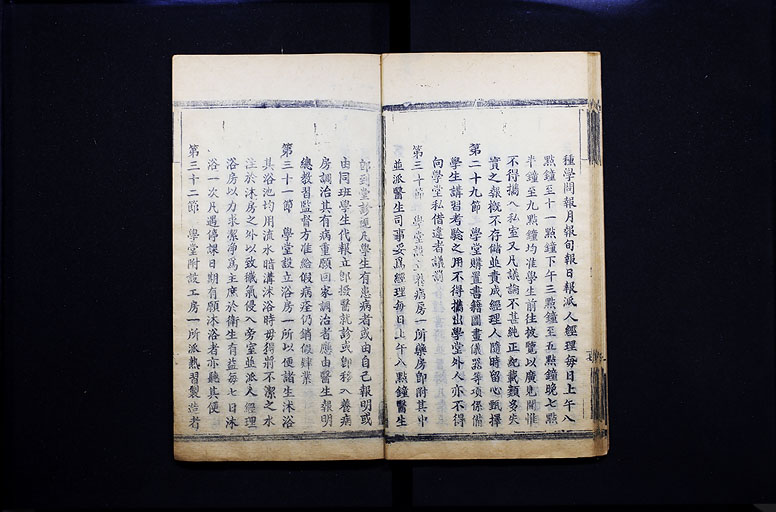 種學問報月報旬報日報派人經理每日上午八
點鐘至十一點鐘下午三點鐘至五點鐘晚七點
半鐘至九點鐘均准學生前往披覽以廣見聞惟
不得攜入私室又凡議論不甚純正紀載類多失
實之報概不存儲並責成經理人隨時留心甄擇
第二十九節 學堂購置書籍圖畫儀器等項係備
學生講習考驗之用不得攜出學堂外人亦不得
向學堂私借違者議罰
第三十節 學堂設立養病房一所藥房即附其中
並派醫生司事妥爲經理每日上午八點鐘醫生
即到堂診視凡學生有患病者或由自己報明或
由同班學生代報立即授醫就診或即移入養病
房調治其有病重願回家調治者應由醫生報明
總教習監督方准給假病痊仍銷假肄業
第三十一節 學堂設立浴房一所以便諸生沐浴
其浴池均用流水暗溝沐浴時毋得將不潔之水
注於沐房之外以致穢氣侵入旁室並派人經理
浴房以力求潔净爲主庶於衛生有益每七日沐
浴一次凡遇停課日期有願沐浴者亦聽其便
第三十二節 學堂附設工房一所派熟習製造者